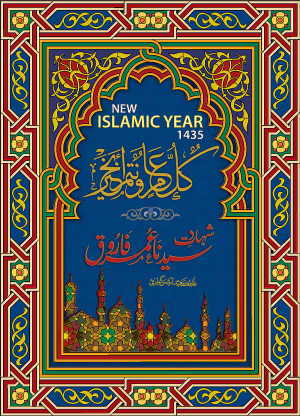 NEW
ISLAMIC YEAR
1435
كل عام وأنتم بخير
شهادت
سیدنا عمر فاروق